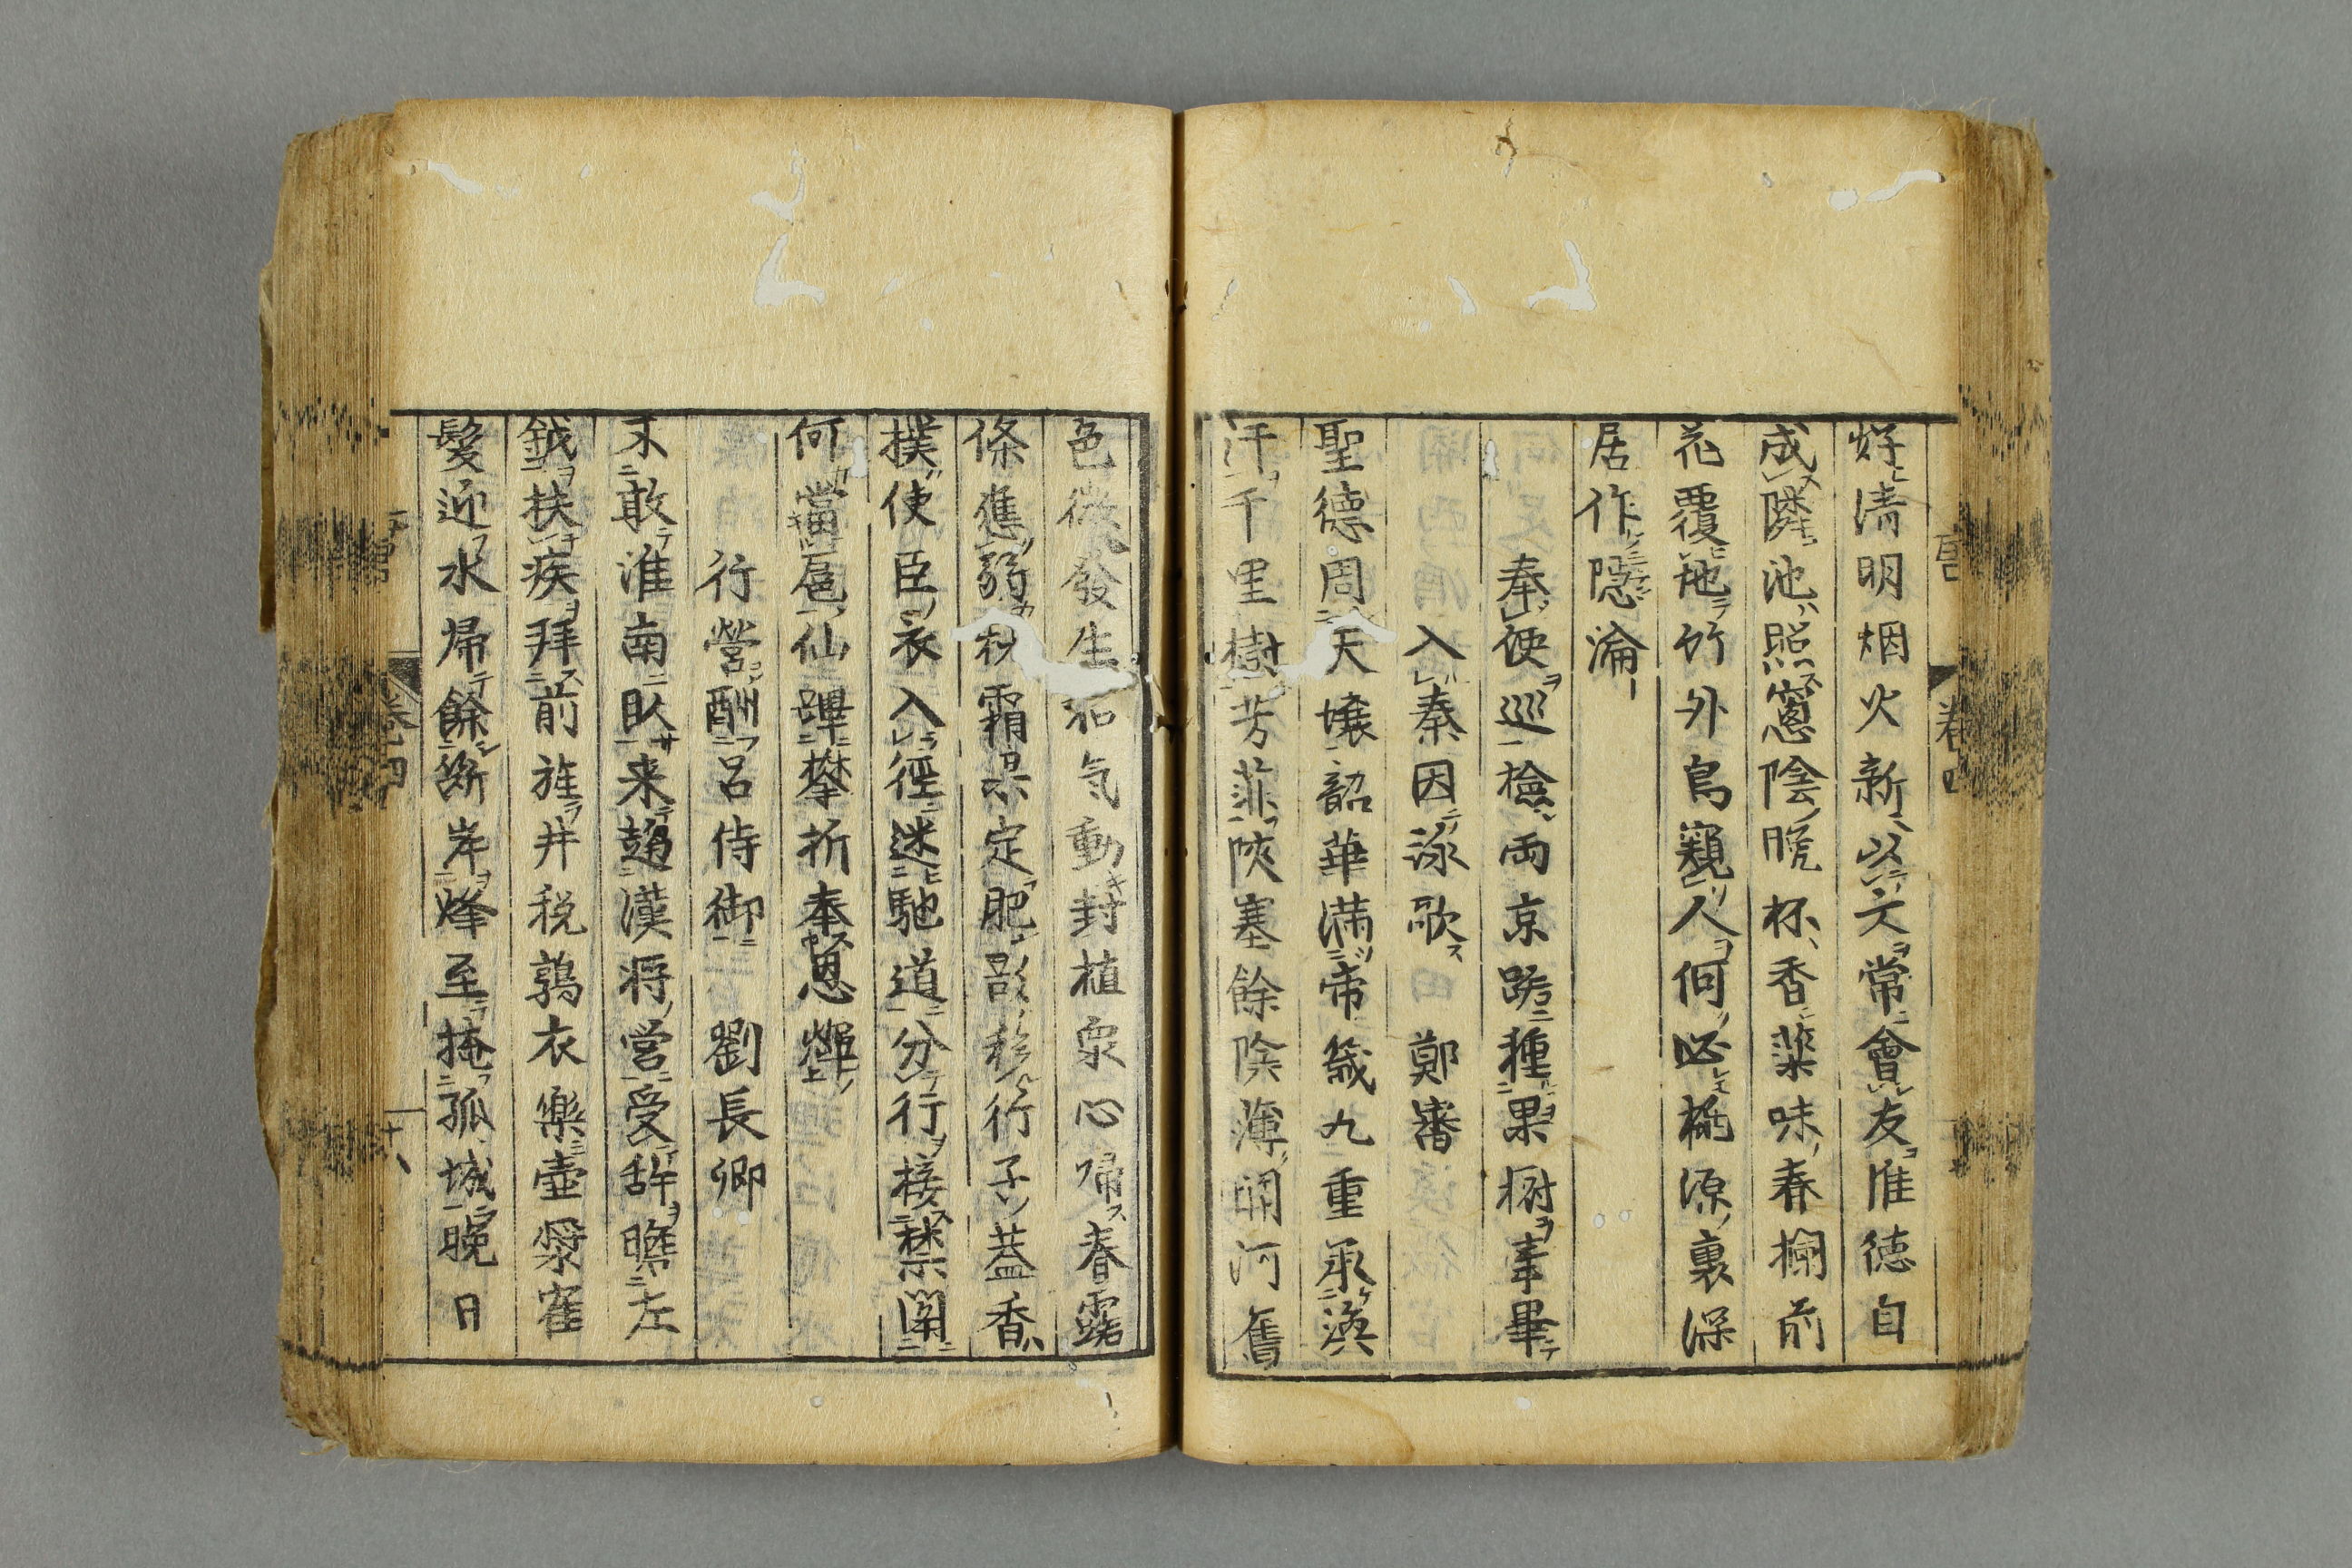 好清明烟火新以文常會友惟徳自
成隣池照窻陰晩杯香藥味春欄前
花覆地竹外鳥窺人何必桃源裏深
居作隠淪
奉使巡檢両京路種果樹事畢
入秦因詠歌 鄭審
聖徳周天壤韶華満帝畿九重承渙
汗千里樹芳菲陝塞餘陰薄関河舊
色微發生和気動封植衆心帰春露
條進弱秋霜果定肥影移行子盖香
撲使臣衣入徑迷馳道分行接禁闈
何當扈仙蹕攀折奉恩輝
行營酬呂侍御 劉長卿
不敢淮南臥来趨漢将営受辞瞻左
鉞扶疾拝前旌井税鶉衣樂壺漿寉
髪迎水帰餘断岸烽至掩孤城晩日